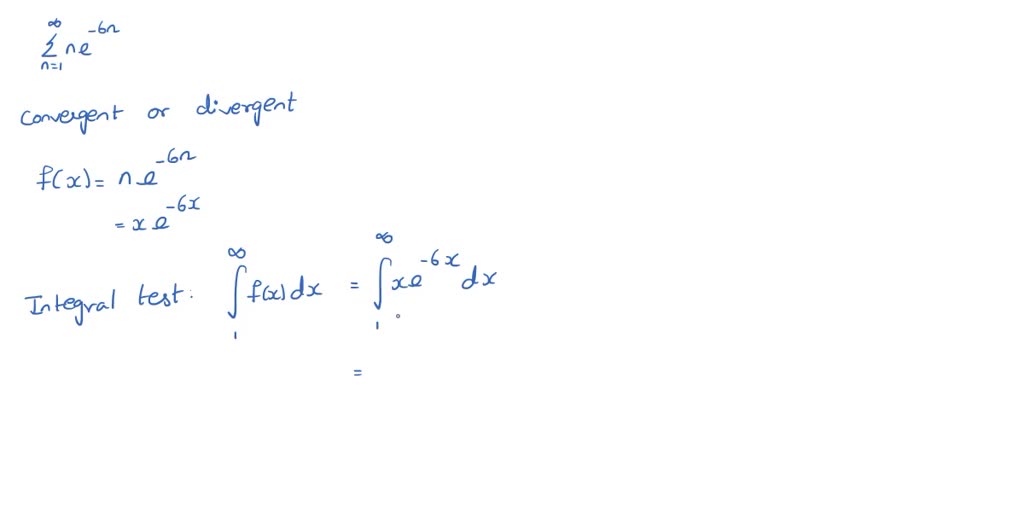 ∞
Σ ne^{-6n}
n=1
convergent or divergent
f(x) = ne^{-6n}
= xe^{-6x}
Integral test: ∫_1^∞ f(x) dx = ∫_1^∞ xe^{-6x} dx
=